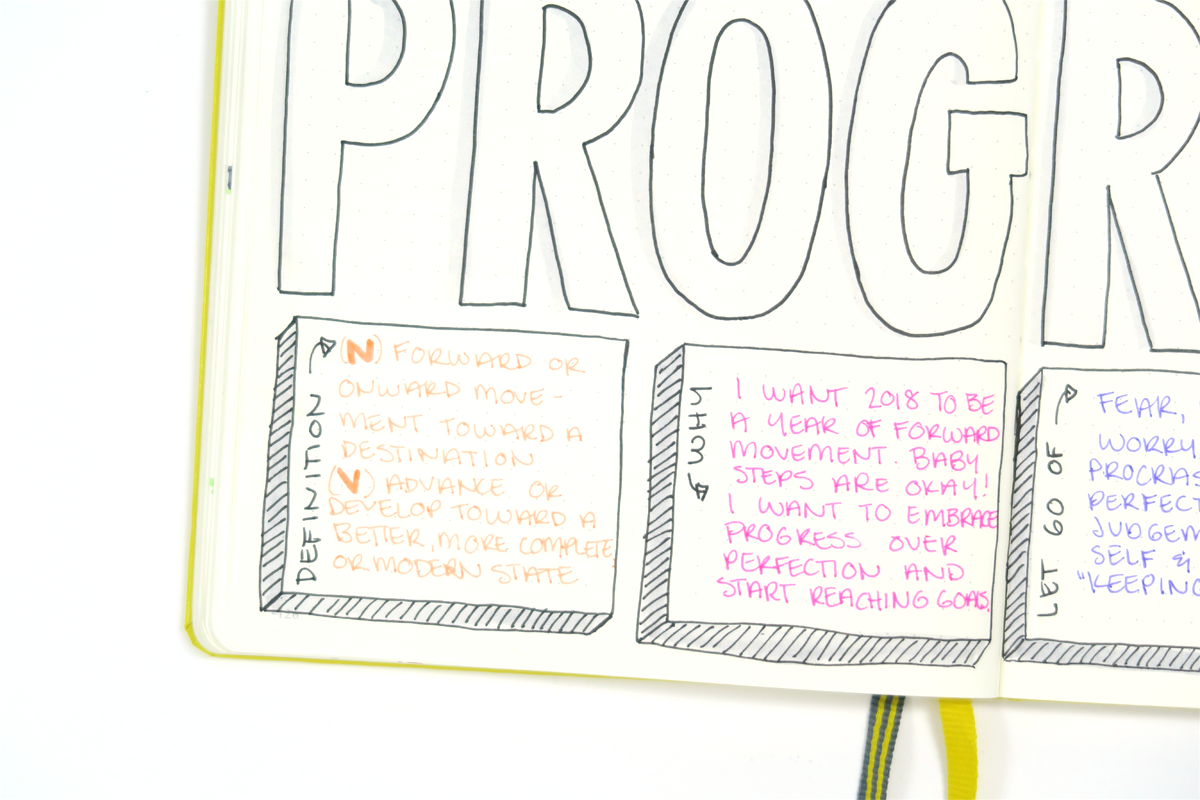 PROGR
DEFINITION
(N) FORWARD OR
ONWARD MOVE-
MENT TOWARD A
DESTINATION
(V) ADVANCE OR
DEVELOP TOWARD A
BETTER, MORE COMPLETE
OR MODERN STATE
WHY
I WANT 2018 TO BE
A YEAR OF FORWARD
MOVEMENT. BABY
STEPS ARE OKAY!
I WANT TO EMBRACE
PROGRESS OVER
PERFECTION AND
START REACHING GOALS.
LET GO OF
FEAR,
WORRY
PROCRAS
PERFECT
JUDGEM
SELF &
"KEEPING